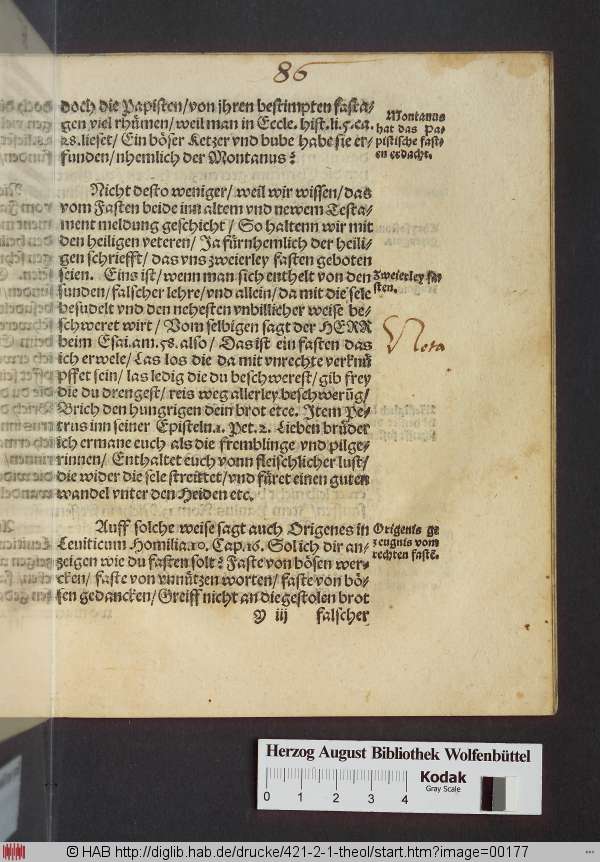 86
doch die Papisten/ von jhren bestimpten fasta-
gen viel rhůmen/ weil man in Eccle. hist. li. 5. ca.
28. lieset/ Ein böser Ketzer vnd bube habe sie er-
funden/ nhemlich der Montanus?
Montanus
hat das Pa-
pistische fast-
en erdacht.
Nicht desto weniger/ weil wir wissen/ das
vom Fasten beide inn altem vnd newem Testa-
ment meldung geschicht/ So haltenn wir mit
den heiligen veteren/ Ja fürnhemlich der heili-
gen schriefft/ das vns zweierley fasten geboten
seien. Eins ist/ wenn man sich enthelt von den
sunden/ falscher lehre/ vnd allein/ da mit die sele
besudelt vnd den nehesten vnbillicher weise be-
schweret wirt/ Vom selbigen sagt der HERR
beim Esai. am. 58. also/ Das ist ein fasten das
ich erwele/ Las los die da mit vnrechte verknü
pffet sein/ las ledig die du beschwerest/ gib frey
die du drengest/ reis weg allerley beschwerūg/
Brich den hungrigen dein brot etce. Item Pe-
trus inn seiner Episteln. 1. Pet. 2. Lieben brüder
ich ermane euch als die fremblinge vnd pilge-
rinnen/ Enthaltet euch vonn fleischlicher lust/
die wider die sele streittet/ vnd füret einen guten
wandel vnter den Heiden etc.
Zweierley fa-
sten.
Nota
Auff solche weise sagt auch Origenes in
Leuiticum Homilia. 10. Cap. 16. Sol ich dir an-
zeigen wie du fasten solt? Faste von bösen wer-
cken/ faste von vnnützen worten/ faste von bö-
sen gedancken/ Greiff nicht an die gestolen brot
Origenis ge
zeugnis vom
rechten fastē.
Y iij falscher
Herzog August Bibliothek Wolfenbüttel
0 1 2 3 4
Kodak
Gray Scale
© HAB http://diglib.hab.de/drucke/421-2-1-theol/start.htm?image=00177